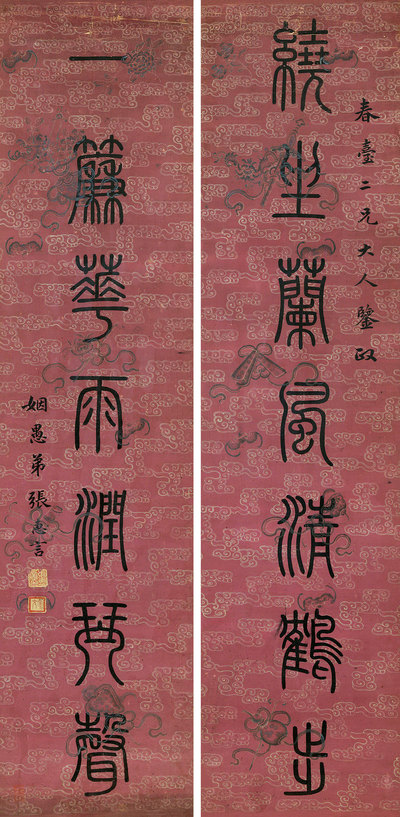 春臺二兄大人鑒政
繞坐蘭風清鶴步
一簾華雨潤琴聲
姻愚弟張惠言